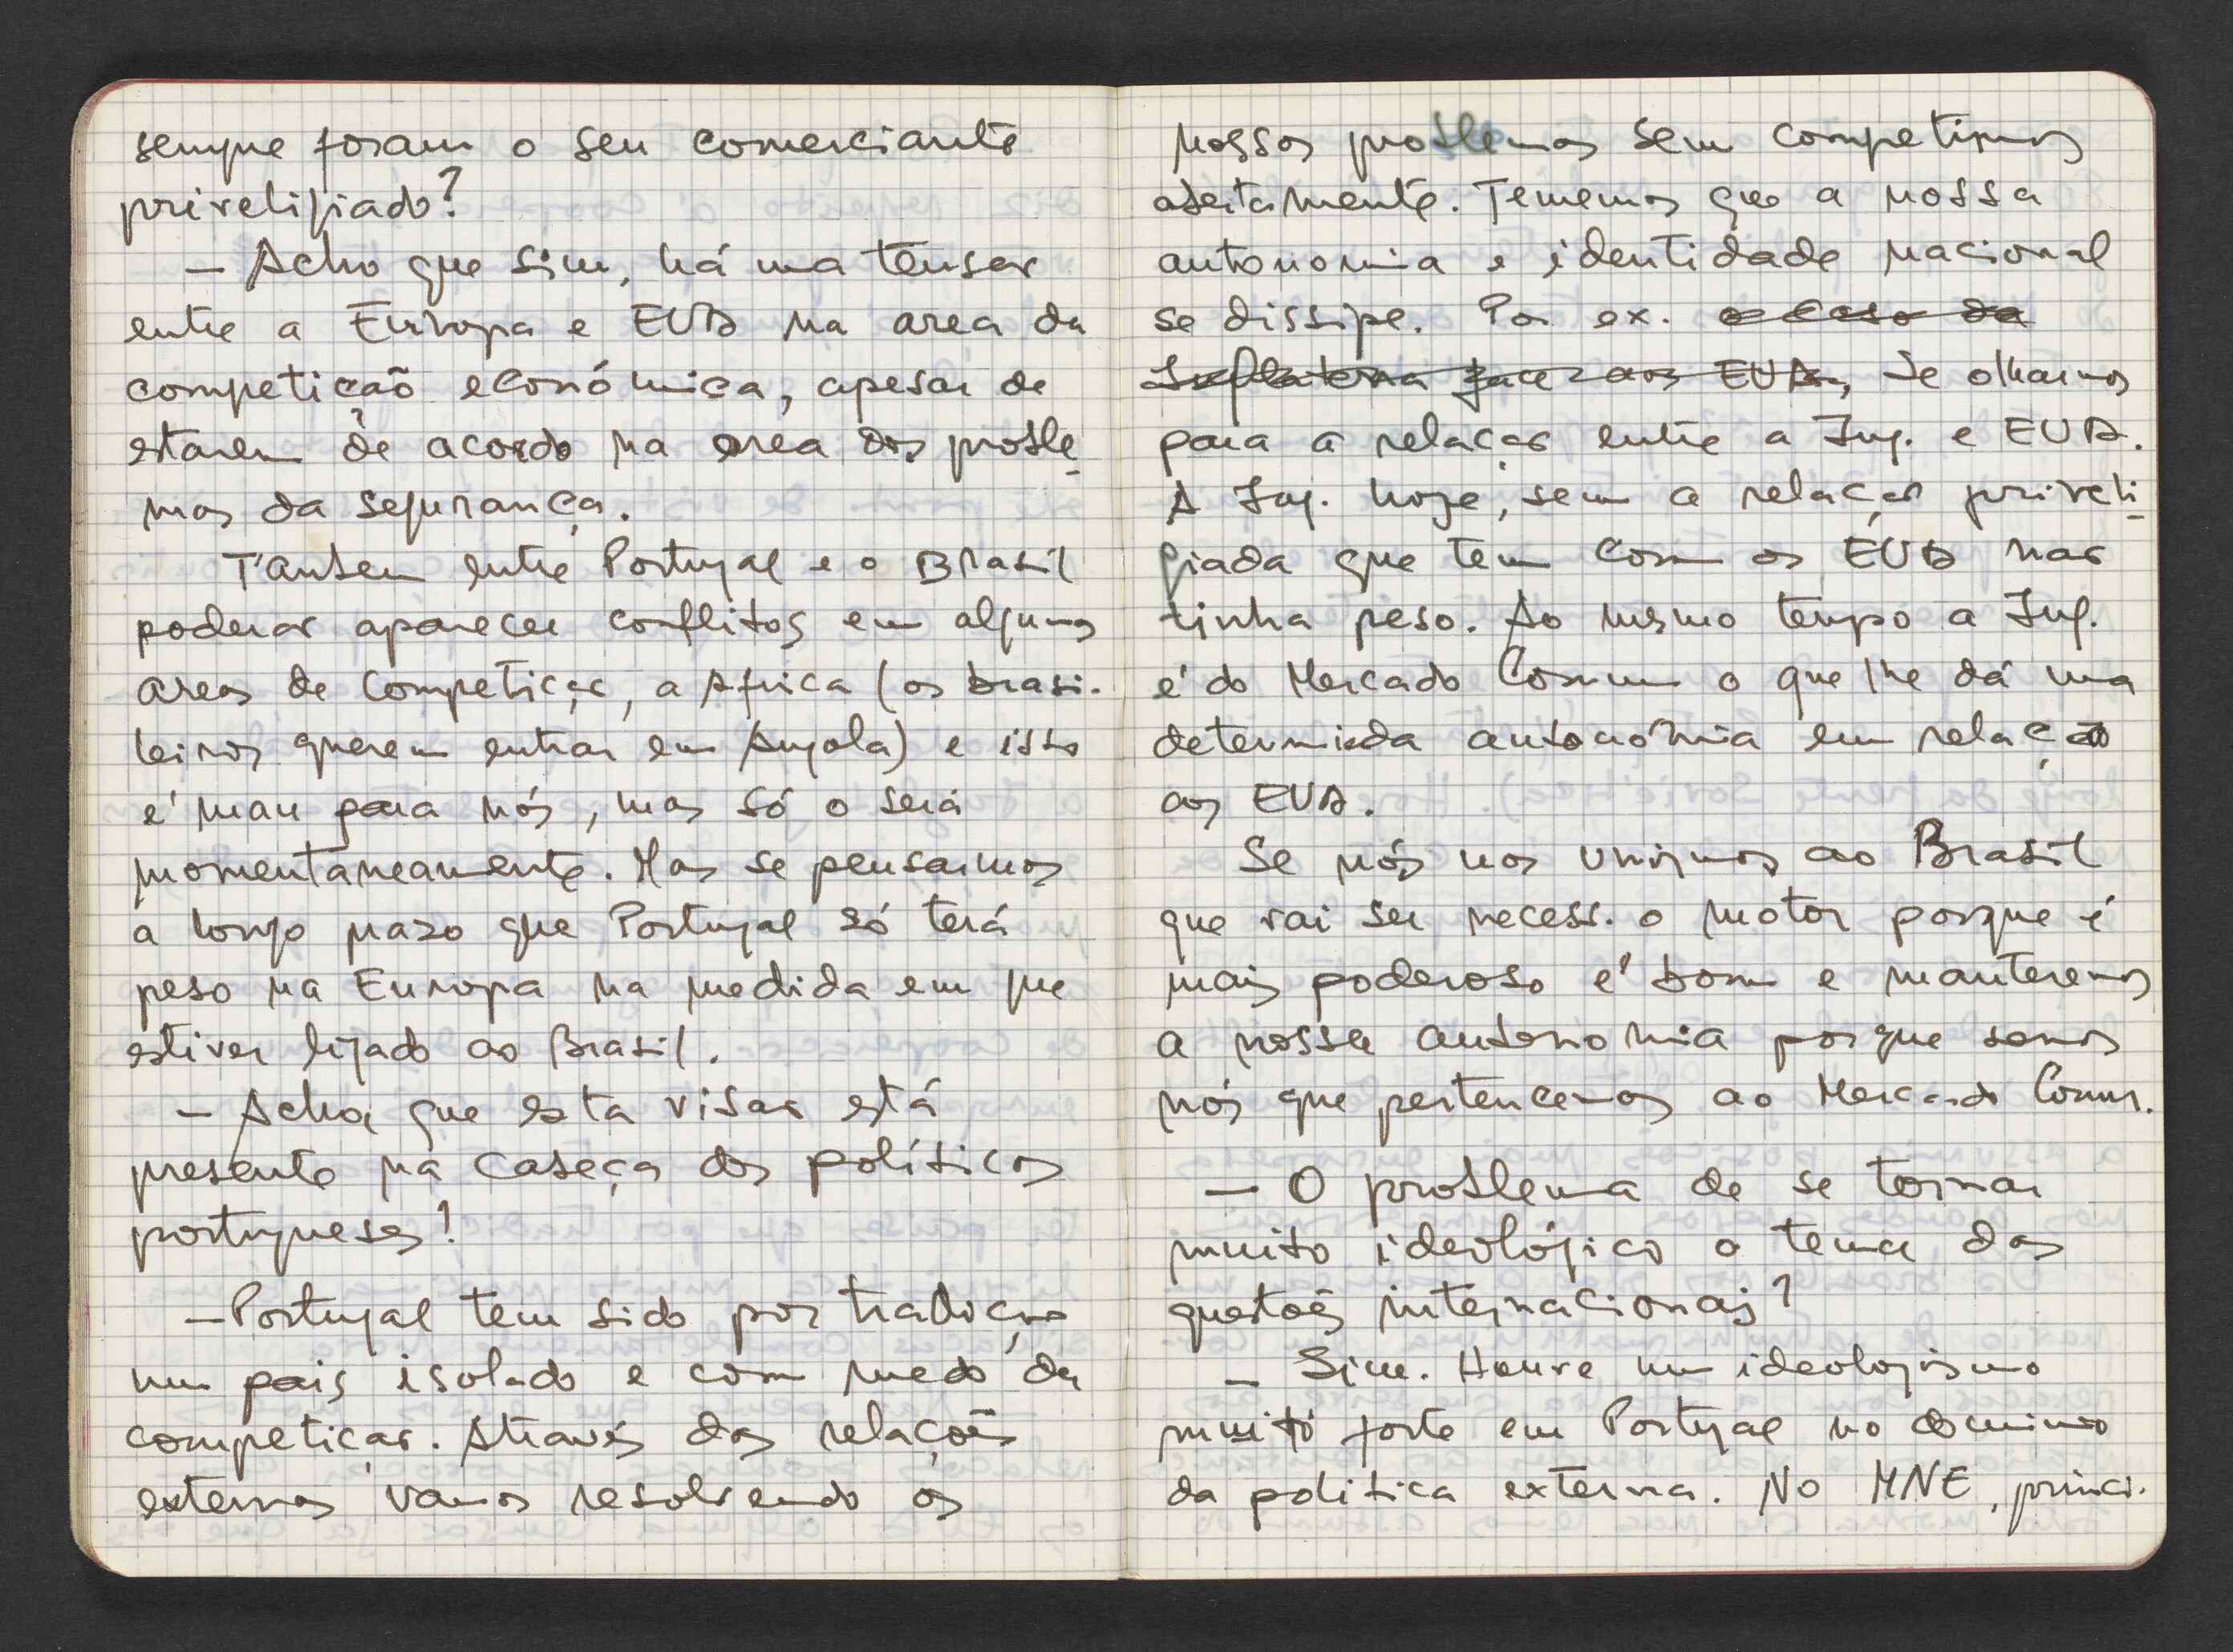 sempre foram o seu comerciante
priveligiado?
— Acho que sim, há uma tensão
entre a Europa e EUA na area da
competição económica, apesar de
estarem de acordo na area dos proble
mas da segurança.
Tambem entre Portugal e o Brasil
poderão aparecer conflitos em algumas
areas de competição, a Africa (os brasi-
leiros querem entrar em Angola) e isso
é mau para nós, mas só o será
momentaneamente. Mas se pensarmos
a longo prazo que Portugal só terá
peso na Europa na medida em que
estiver ligado ao Brasil.
— Acha que esta visão está
presente na cabeça dos políticos
portugueses?
— Portugal tem sido por tradição
um pais isolado e com medo da
competição. Através das relações
externas vamos resolvendo os
nossos problemas sem competirmos
abertamente. Tememos que a nossa
autonomia e identidade nacional
se dissipe. Por ex. o caso da
Inglaterra face aos EUA, Se olharmos
para a relação entre a Ing. e EUA.
A Ing. hoje, sem a relação priveli
giada que tem com os EUA não
tinha peso. Ao mesmo tempo a Ing.
é do Mercado Comum o que lhe dá uma
determinda autonomia em relação
aos EUA.
Se nós nos unirmos ao Brasil
que vai ser necess. o motor porque é
mais poderoso é bom e manteremos
a nossa autonomia porque somos
nós que pertencemos ao Mercado Comum.
— O problema de se tornar
muito ideológico o tema das
questões internacionais?
— Sim. Houve um ideologismo
muito forte em Portugal no dominio
da politica externa. No MNE, princi-